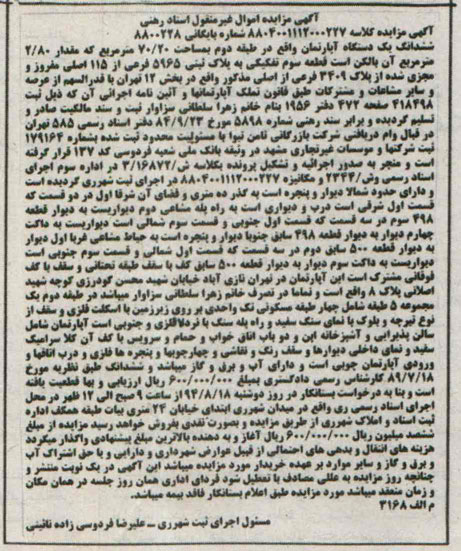 آگهی مزایده اموال غیرمنقول اسناد رهنی
آگهی مزایده کلاسه ۸۸۰۴۰۰۱۱۱۲۰۰۰۲۲۷ شماره بایگانی ۸۸۰۰۲۲۸
ششدانگ یک دستگاه آپارتمان واقع در طبقه دوم بمساحت ۷۰/۲۰ مترمربع که مقدار ۲/۸۰
مترمربع آن بالکن است قطعه سوم تفکیکی به پلاک ثبتی ۵۹۶۵ فرعی از ۱۱۵ اصلی مفروز و
مجزی شده از پلاک ۳۴۰۹ فرعی از اصلی مذکور واقع در بخش ۱۲ تهران با قدرالسهم از عرصه
و سایر مشاعات و مشترکات طبق قانون تملک آپارتمانها و آئین نامه اجرائی آن که ذیل ثبت
۴۱۸۴۹۸ صفحه ۴۷۲ دفتر ۱۹۵۶ بنام خانم زهرا سلطانی سزاوار ثبت و سند مالکیت صادر و
تسلیم گردیده و برابر سند رهنی شماره ۵۸۹۸ مورخ ۸۴/۹/۲۳ دفتر اسناد رسمی ۵۸۵ تهران
در قبال وام دریافتی شرکت بازرگانی ثامن تیوا با مسئولیت محدود ثبت شده بشماره ۱۷۹۱۶۴
ثبت شرکتها و موسسات غیرتجاری مشهد در وثیقه بانک ملی شعبه فردوسی کد ۱۳۷ قرار گرفته
است و منجر به صدور اجرائیه و تشکیل پرونده بکلاسه ش/۳/۱۶۸۷۲ در اداره سوم اجرای
اسناد رسمی و ش/۲۳۴۴ و مکانیزه ۸۸۰۴۰۰۱۱۱۲۰۰۰۲۲۷ در اجرای ثبت شهرری گردیده است
و دارای حدود شمالا دیوار و پنجره است به گذر ده متری و فضای آن شرقا اول در دو قسمت که
قسمت اول شرقی است درب و دیواری است به راه پله مشاعی دوم دیواریست به دیوار قطعه
۴۹۸ سوم در سه قسمت که قسمت اول جنوبی و قسمت سوم شمالی است دیواریست به داکت
چهارم دیوار به دیوار قطعه ۴۹۸ سابق جنوبا دیوار و پنجره است به حیاط مشاعی غربا اول دیوار
به دیوار قطعه ۵۰۰ سابق دوم در سه قسمت که قسمت اول شمالی و قسمت سوم جنوبی است
دیواریست به داکت سوم دیوار به دیوار قطعه ۵۰۰ سابق کف با سقف طبقه تحتانی و سقف با کف
فوقانی مشترک است این آپارتمان در تهران نازی آباد خیابان شهید محسن گودرزی کوچه شهید
اصلانی پلاک ۸ واقع است و تماما در تصرف خانم زهرا سلطانی سزاوار میباشد در طبقه دوم یک
مجموعه ۵ طبقه شامل چهار طبقه مسکونی تک واحدی بر روی زیرزمین با اسکلت فلزی و سقف از
نوع تیرچه و بلوک با نمای سنگ سفید و راه پله سنگ با نرده فلزی و جنوبی است آپارتمان شامل
سالن پذیرایی و آشپزخانه اپن و دو باب اتاق خواب و حمام و سرویس با کف آن کلا سرامیک
سفید و نمای داخلی دیوارها و سقف رنگ و نقاشی و چهارچوبها و پنجره ها فلزی و درب اتاقها و
ورودی آپارتمان چوبی است و دارای آب و برق و گاز میباشد و ششدانگ طبق نظریه مورخ
۸۹/۷/۱۸ کارشناس رسمی دادگستری بمبلغ ۶۰۰/۰۰۰/۰۰۰ ریال ارزیابی و بها قطعیت یافته
است و بنا به درخواست بستانکار در روز دوشنبه ۹۴/۸/۱۸ از ساعت ۹ صبح الی ۱۲ ظهر در محل
اجرای اسناد رسمی ری واقع در میدان شهرری ابتدای خیابان ۲۴ متری بیات طبقه همکف اداره
ثبت اسناد و املاک شهرری از طریق مزایده و بصورت نقدی بفروش خواهد رسید مزایده از مبلغ
ششصد میلیون ریال ۶۰۰/۰۰۰/۰۰۰ ریال آغاز و به دهنده بالاترین مبلغ پیشنهادی واگذار میگردد
هزینه های انتقال و بدهی های احتمالی از قبیل عوارض شهرداری و دارایی و یا حق اشتراک آب
و برق و گاز و سایر موارد بر عهده خریدار مورد مزایده میباشد این آگهی در یک نوبت منتشر و
چنانچه روز مزایده به عللی مصادف با تعطیل شود فردای اداری همان روز جلسه در همان مکان
و زمان منعقد میباشد مورد مزایده طبق اعلام بستانکار فاقد بیمه میباشد.
م الف ۳۱۶۸
مسئول اجرای ثبت شهرری ــ علیرضا فردوسی زاده نائینی